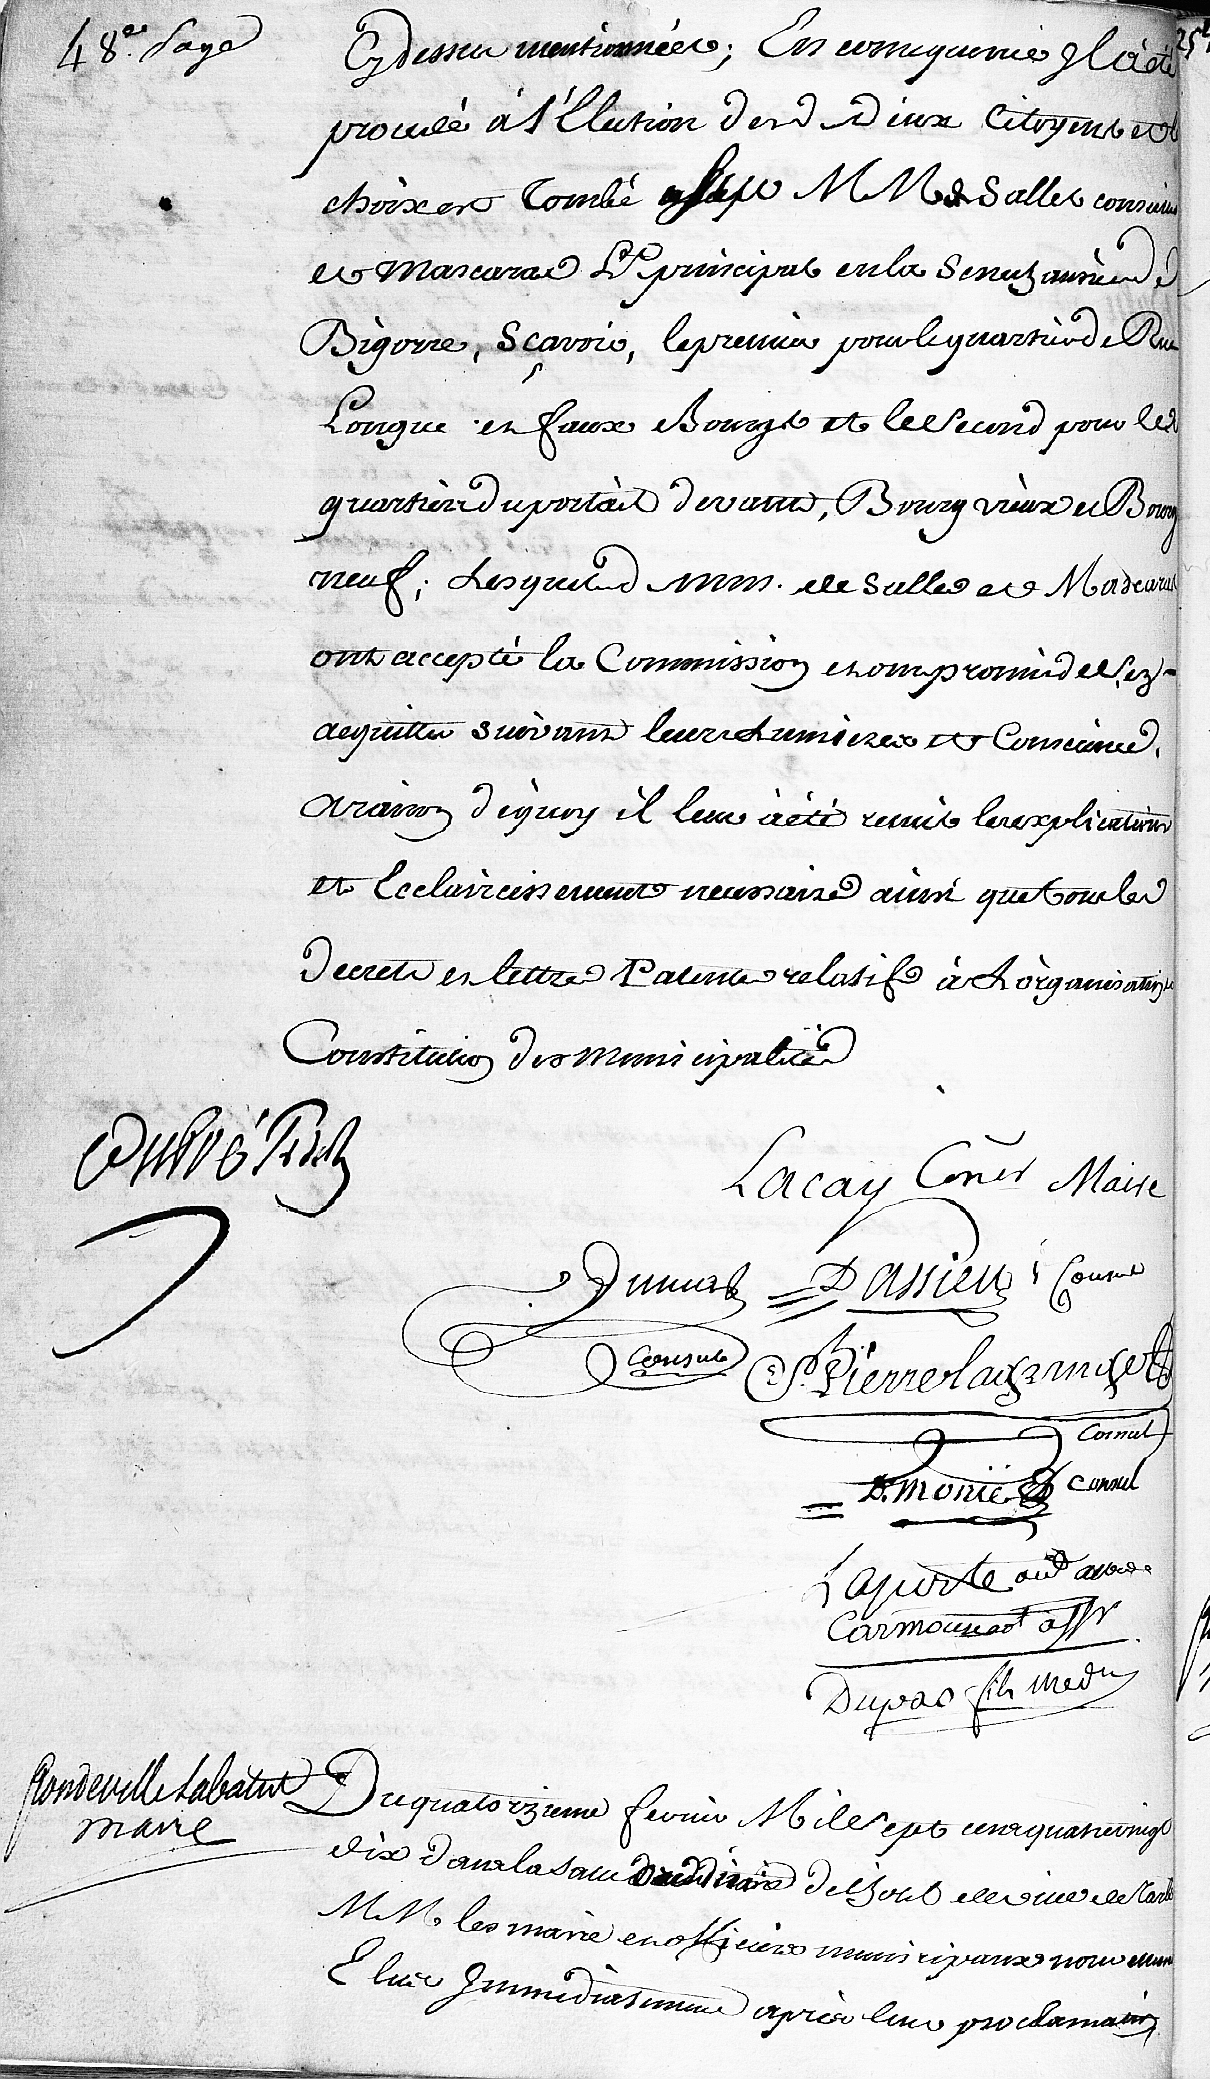 48e. Page
Cydessus mentionnées; En consequence Il à été
procédé à l'Ellection desd. deux Citoyens et le
choix est Tombé sur MM de Salles conseiller
et Mascaras Lt. principal en la Senechaussée de
Bigorre, Sçavoir, le premier pour le quartier de Rue
Longue et faux Bourgs et le Second pour les
quartiers du portail devant, Bourg vieux et Bourg
neuf; Lesquels d. mm. de Salles et Mascaras
ont accepté la Commission et ont promis de s'ez
acquitter suivant leurs Lumieres et Conscience,
a raison dequoy il leur à été remis les explications
et Eclaircissements necessaires ainsi que tous les
Decrets et lettres Patentes relatifs à L'organisation
Constitution des Municipalités
Lacay Coner Maire
Dumas
Dassieu Consul
Consul
Pierre
Consul
D. monie Consul
Laporte
Carmouset assr
Dupas fils medn
Gondeville Labatut
maire
Du quatorzieme fevrier Mil Sept cens quatre vingt
dix dans la salle de l'hotel de ville de Tarbes
MM les maire et officiers municipaux nouvellement
Elus Immediatement après leur proclamation